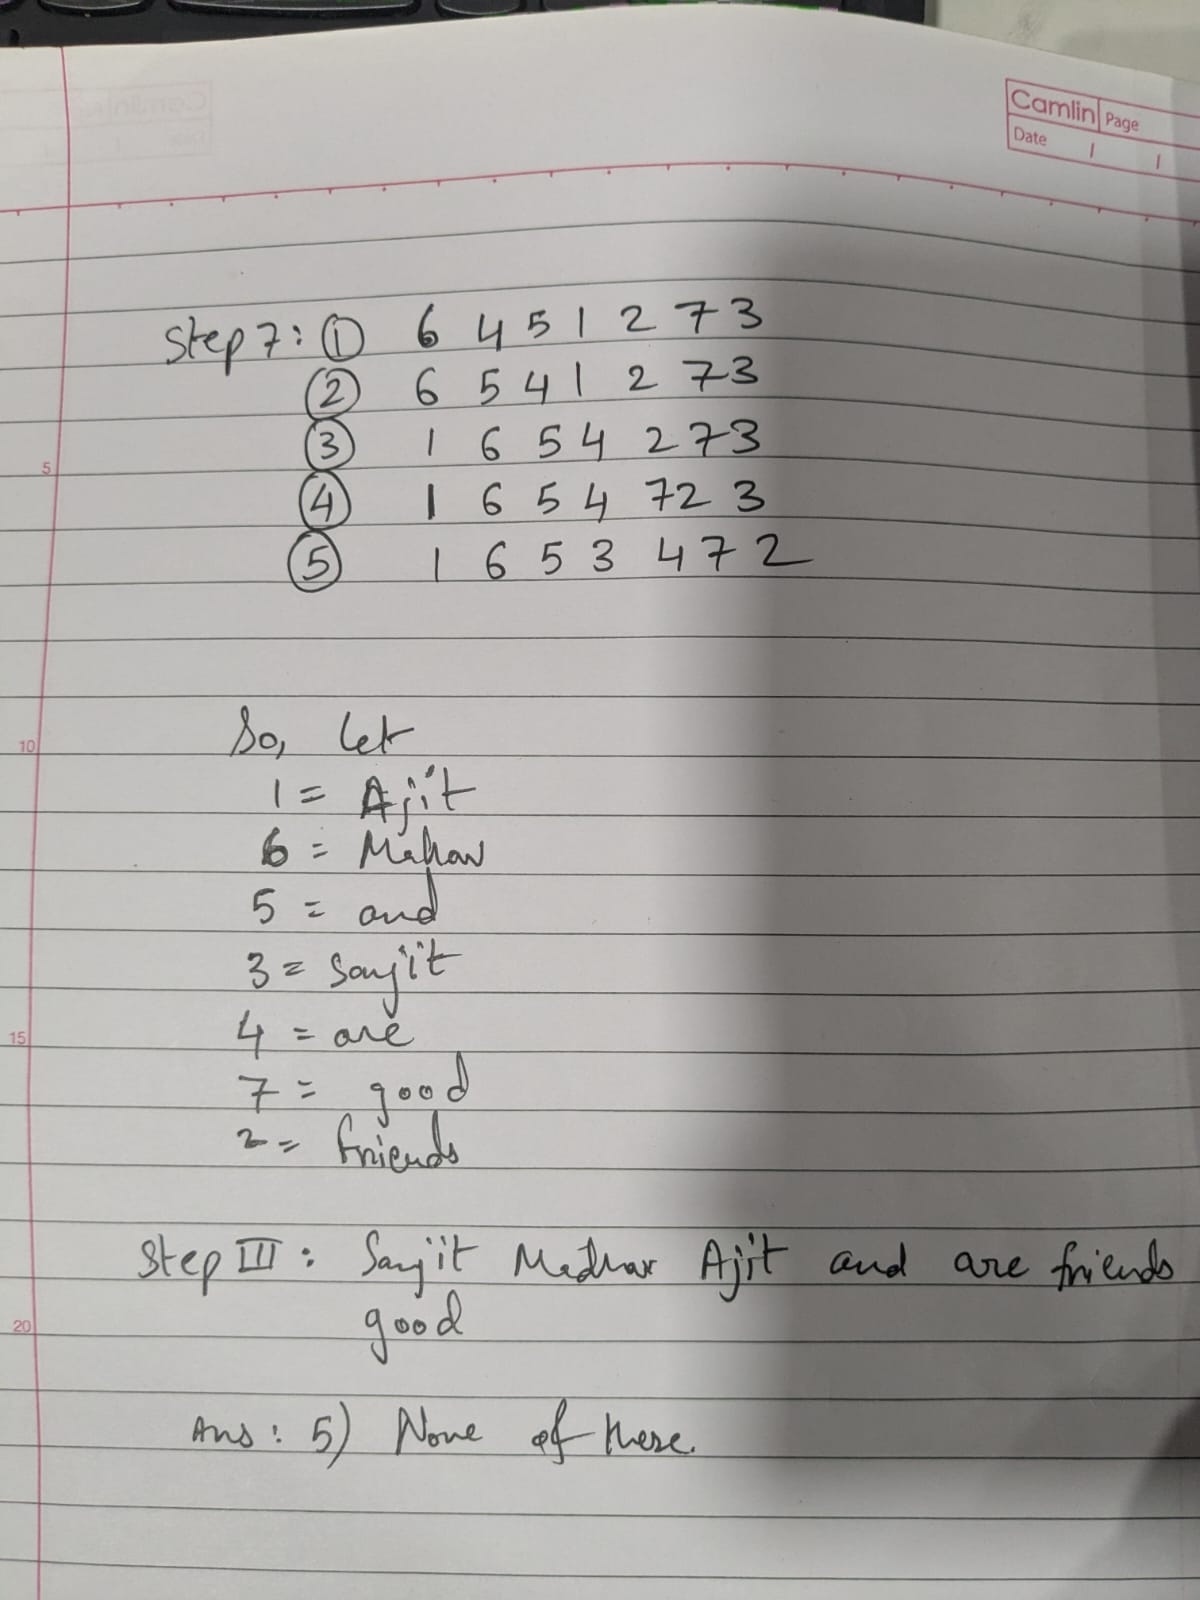 Camlin Page
Date / /
Step 7: ① 6 4 5 1 2 7 3
② 6 5 4 1 2 7 3
③ 1 6 5 4 2 7 3
④ 1 6 5 4 7 2 3
⑤ 1 6 5 3 4 7 2
5
So, let
10
1 = Ajit
6 =
5 = and
3 = Sanjit
4 = are
15
7 = good
2 = friends
Step III : Sanjit Madhav Ajit and are friends
good
20
Ans : 5) None of these.